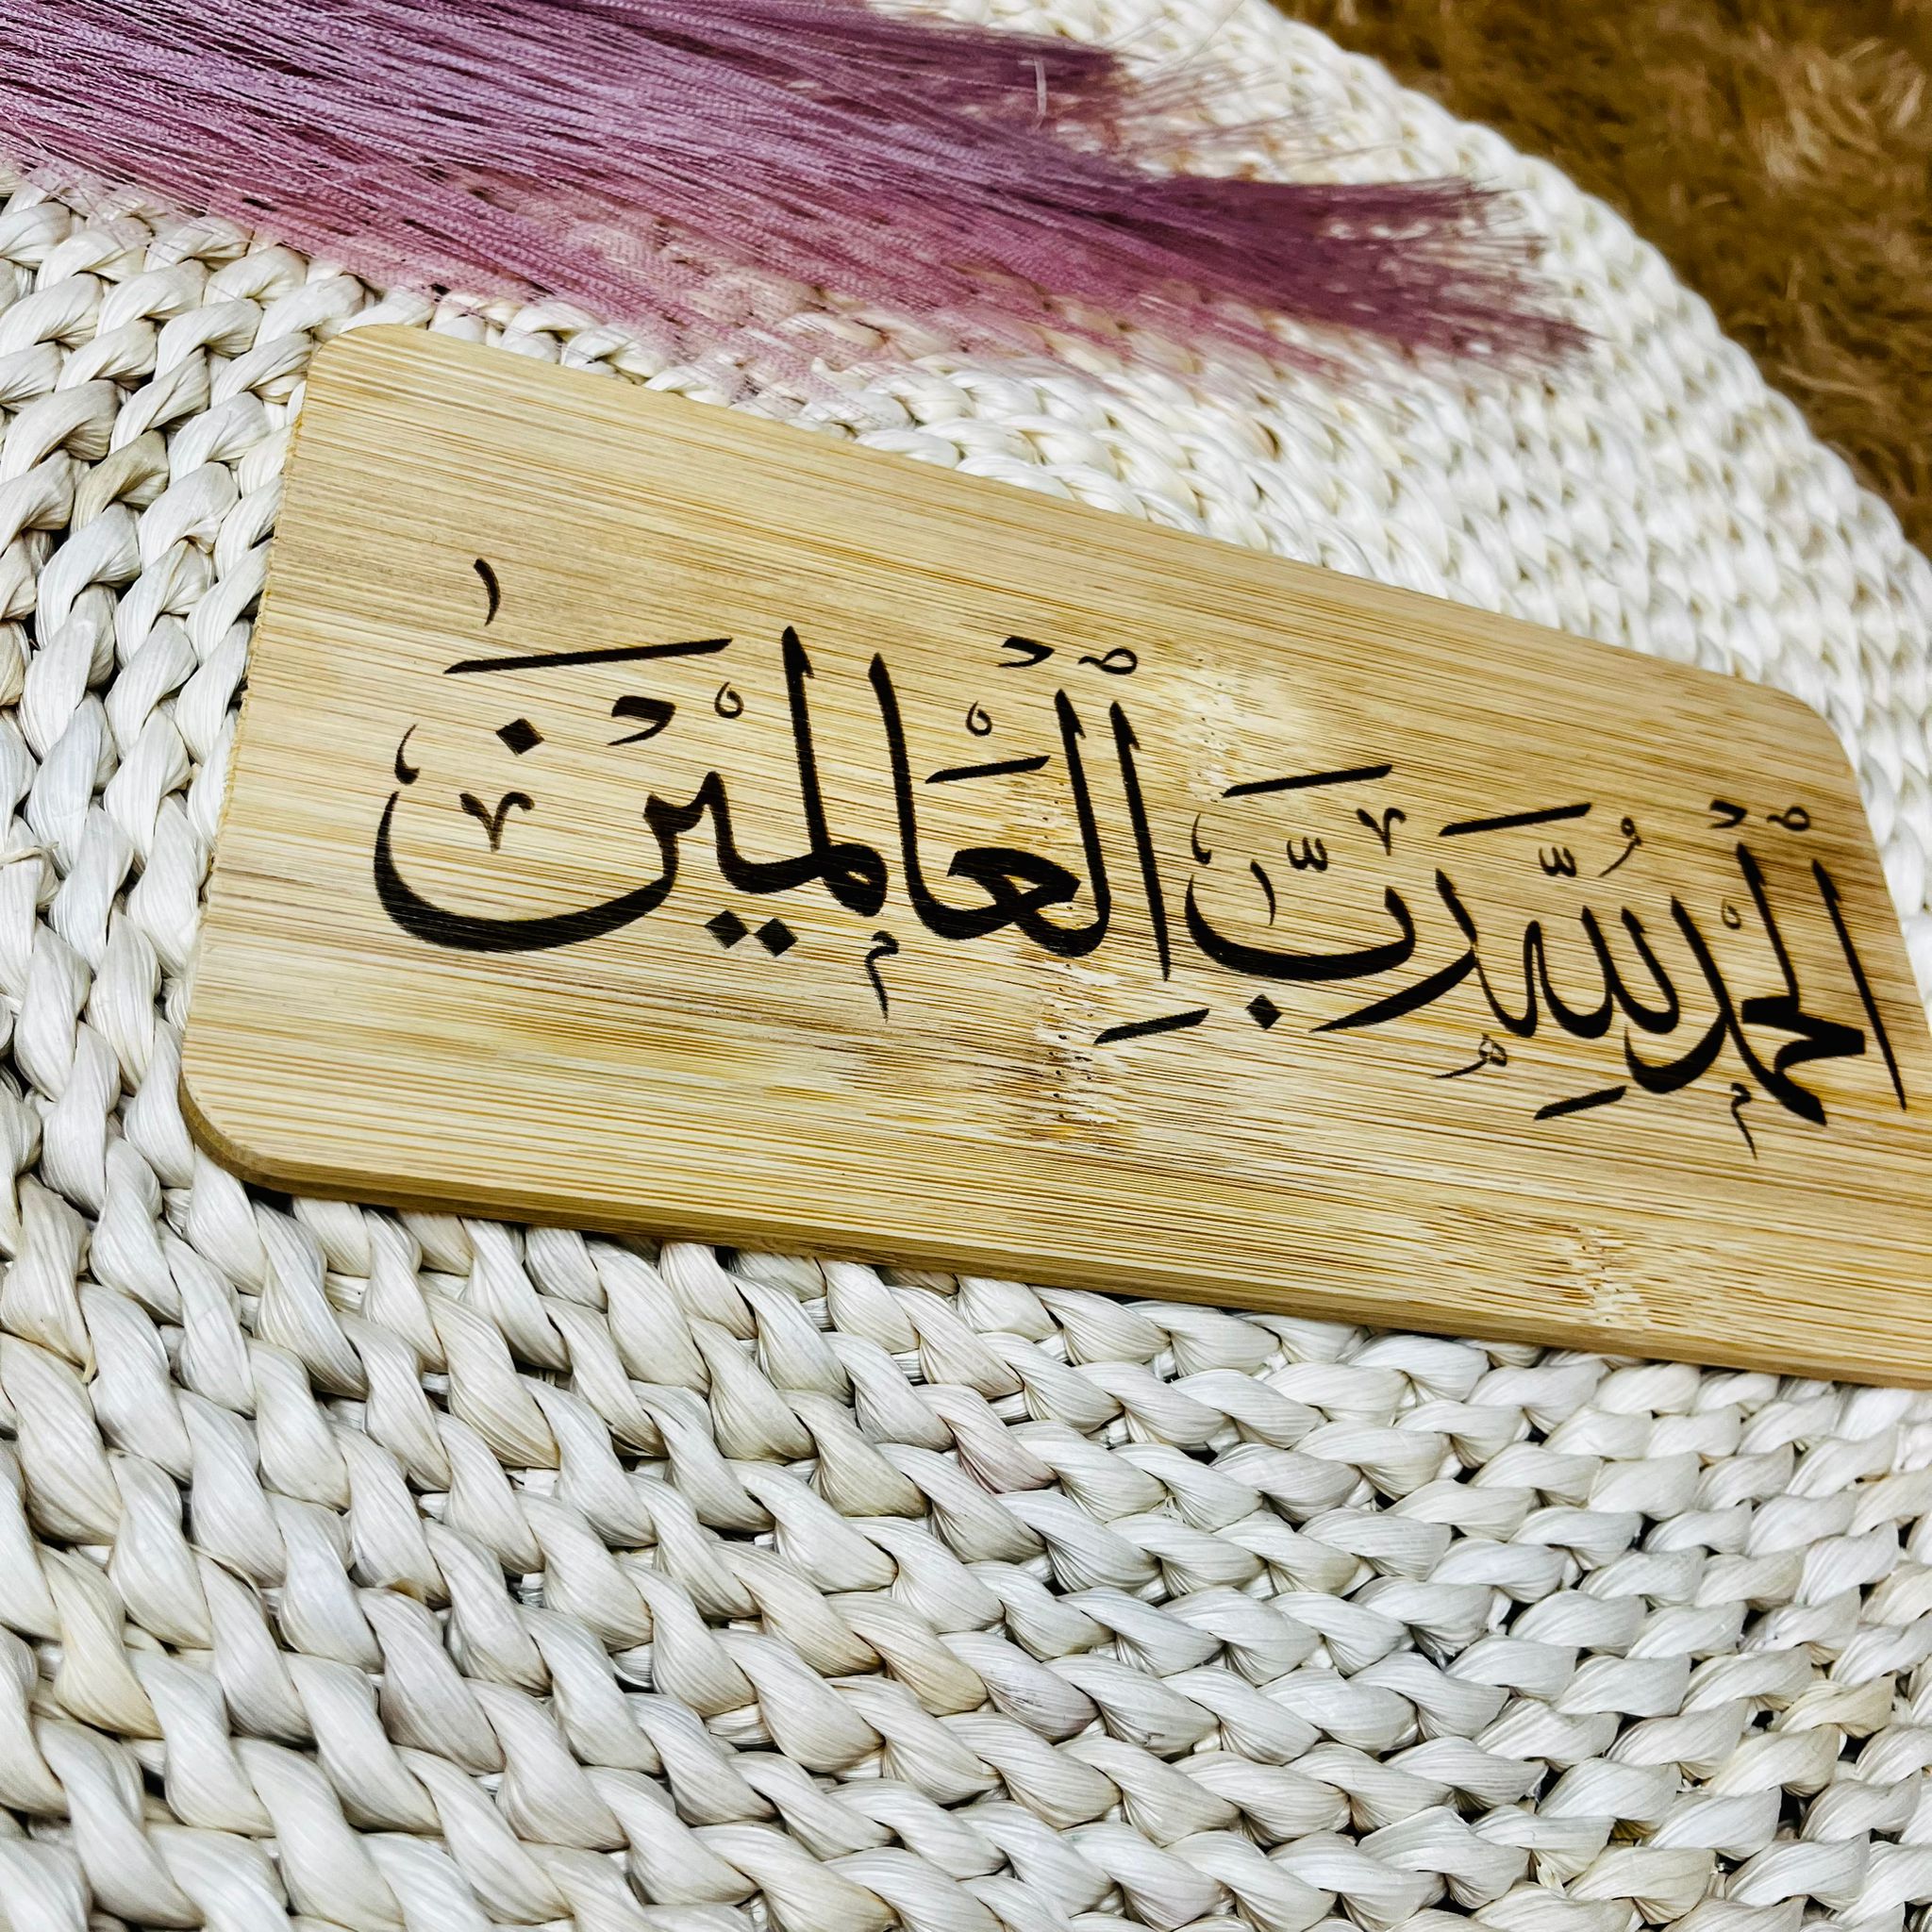 الْحَمْدُ لِلَّهِ رَبِّ الْعَالَمِينَ